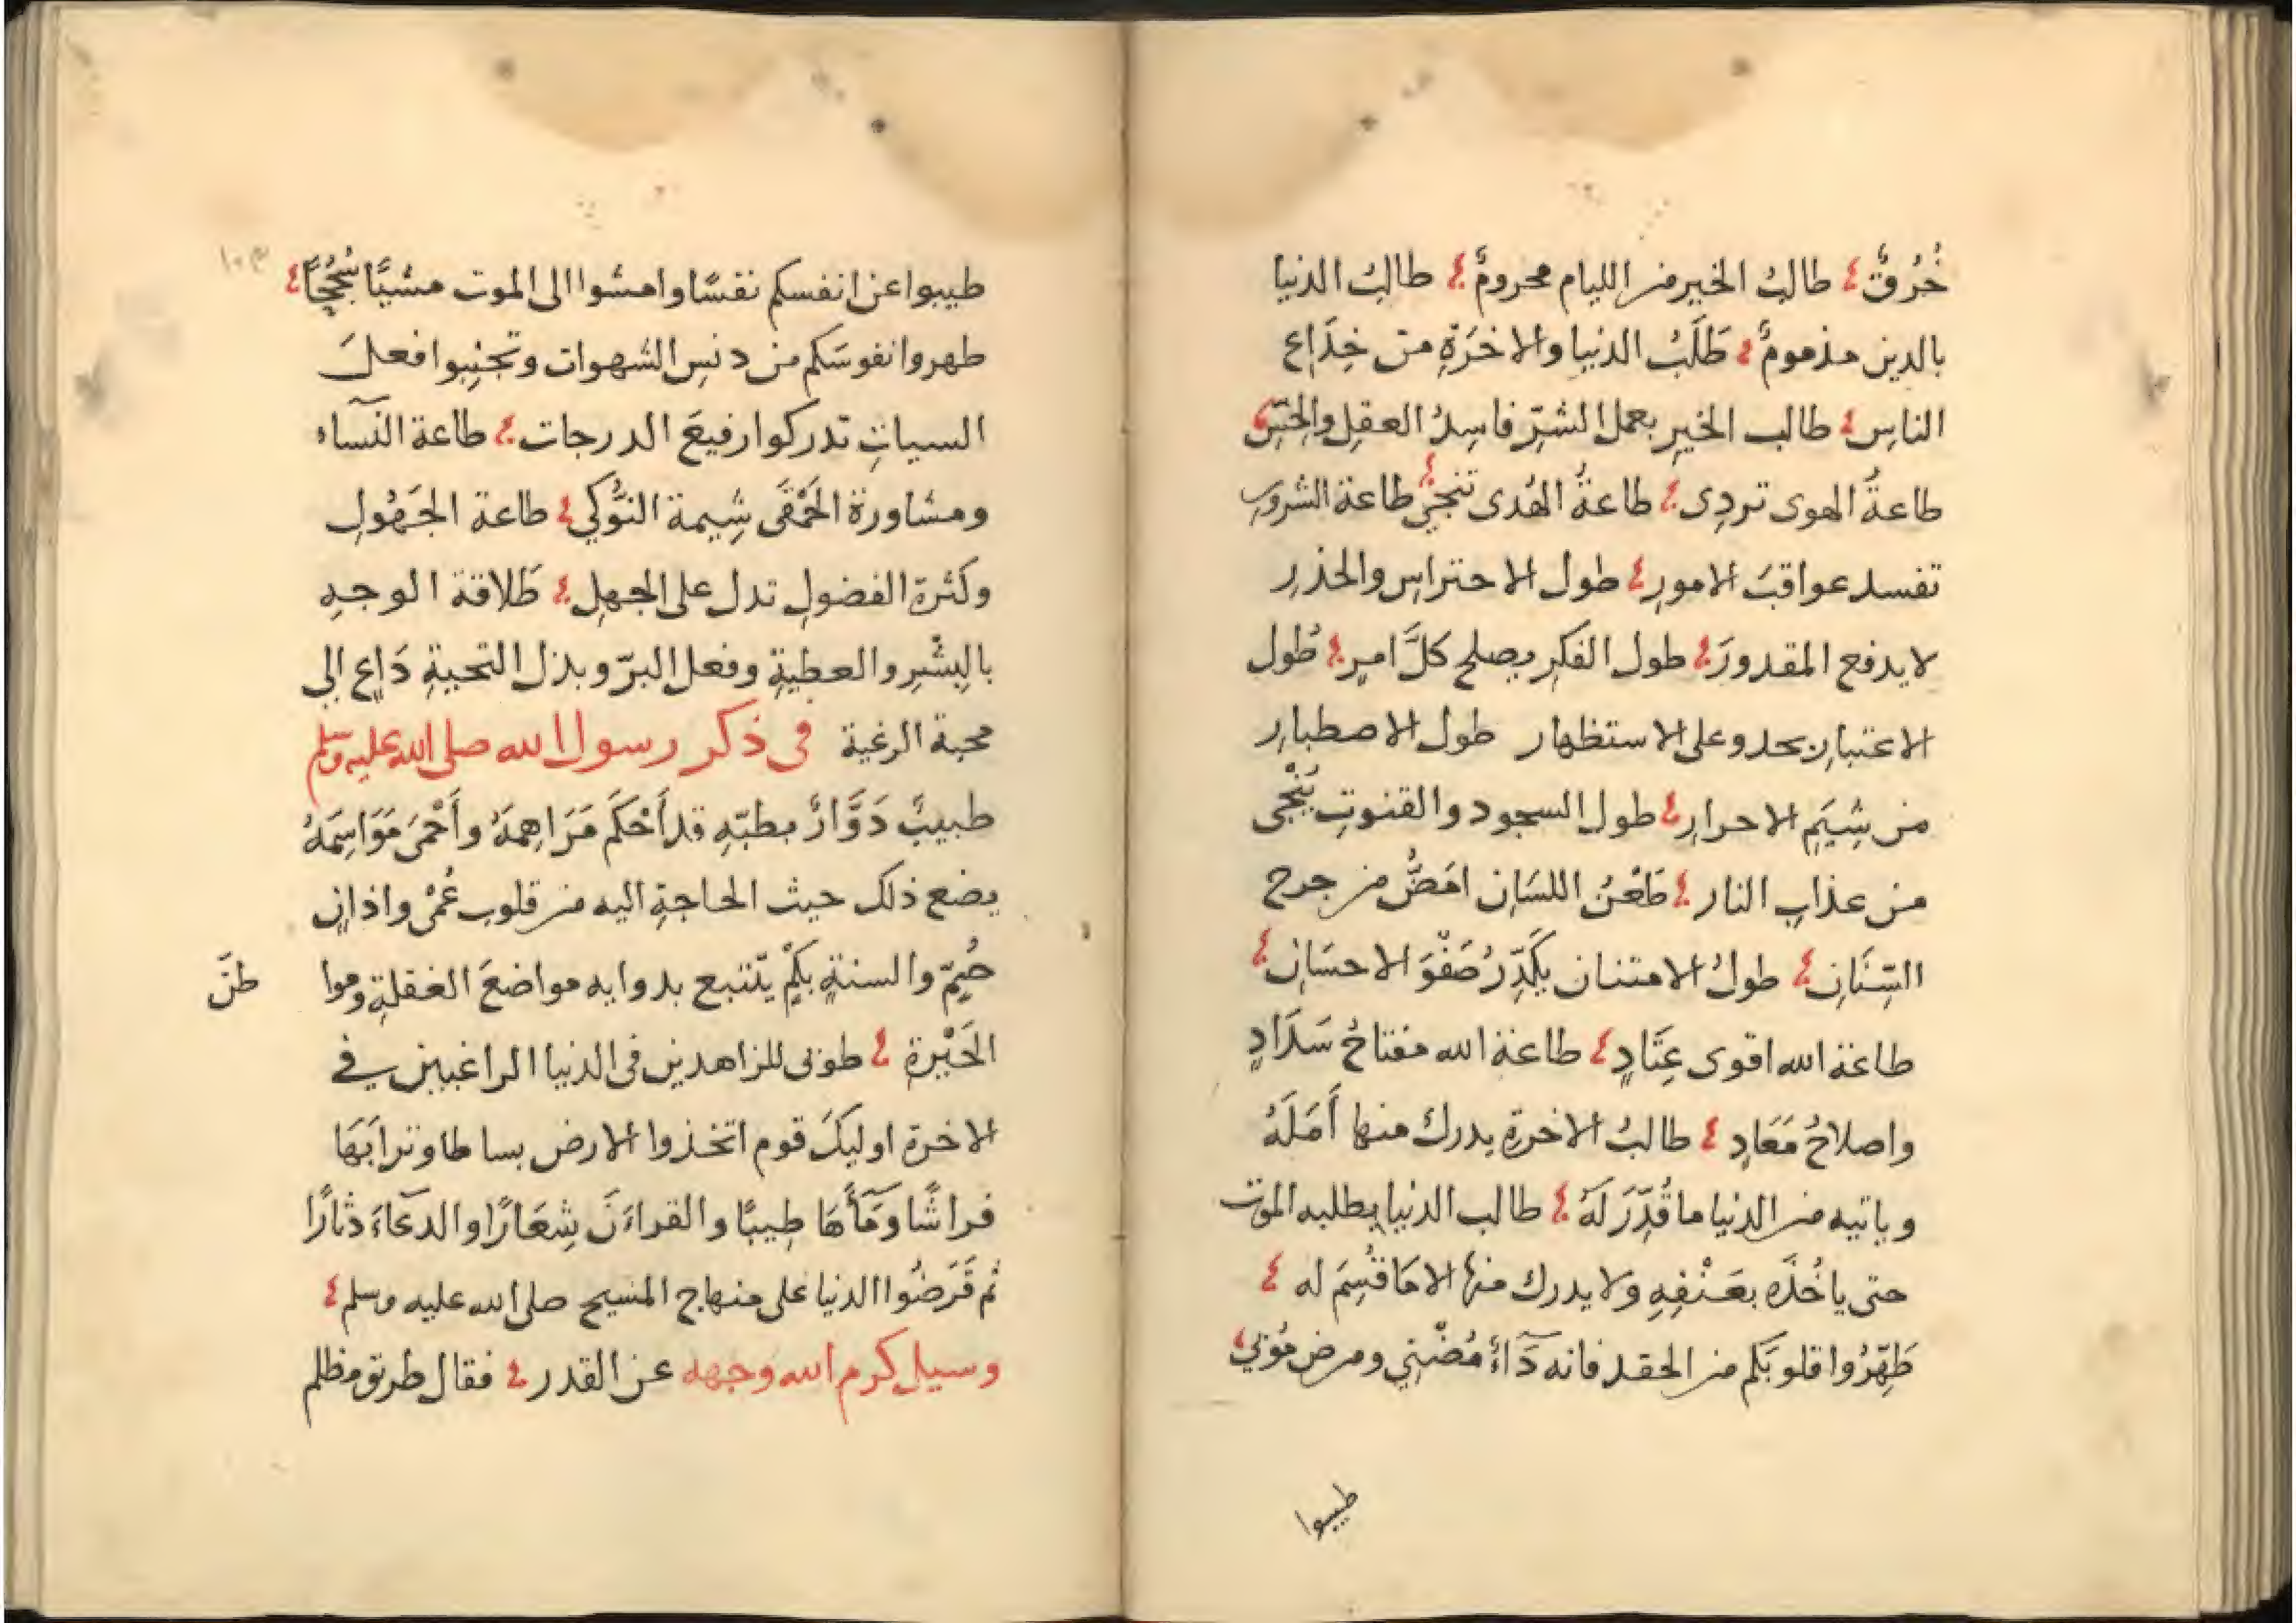 خُرُقٌ ؛ طالبُ الخير من الليام محرومٌ ؛ طالبُ الدنيا
بالدين مذمومٌ ؛ طَلَبُ الدنيا والاخرَةِ من خِدَاع
الناسِ ؛ طالب الخيرِ بعمل الشرِّ فاسِدُ العقلِ والحِسِّ ؛
طاعةُ الهوى تردِى ؛ طاعةُ الهُدى تنجىْ ؛ طاعة الشرورِ
تفسد عواقبَ الامورِ ؛ طول الاحتراسِ والحذرِ
لا يدفع المقدورَ ؛ طول الفكرِ يصلح كلَّ امرٍ ؛ طُول
الاعتبارِ يحدو على الاستظهار طول الاصطبارِ
من شِيَمِ الاحرارِ ؛ طول السجود والقنوتِ يُنْجى
من عذابِ النار ؛ طَعْنُ اللسَانِ امَضُّ من جرح
السِّنَانِ ؛ طولُ الامتنان يكَدِّرُ صَفْوَ الاحسَانِ ؛
طاعة الله اقوى عِتَادٍ ؛ طاعة الله مفتاحُ سَدَادٍ
واصلاحُ مَعَادٍ ؛ طالبُ الاخرةِ يدرك منها أَمَلَهُ
وياتيه من الدنيا ما قُدِّرَ لَهُ ؛ طالب الدنيا يطلبه الموت
حتى ياخُذَه بعَنْفِهِ ولا يدرك منها الا مَا قُسِمَ له ؛
طَهِّرُوا قلوبَكم من الحقد فانه دَآءٌ مُضْنِي ومرض مُوْبي ؛
طيبوا
١٠٣
طيبوا عن انفسكم نفسًا وامشوا الى الموت مشيًا سُجُحًا ؛
طهروا نفوسَكم من دنسِ الشهوات وتجنِبوا فعلَ
السياتِ تدركوا رفيعَ الدرجات ؛ طاعة النسآء
ومشاورة الحَمْقَى شِيمة النَّوْكي ؛ طاعة الجَهُولِ
وكثرة الفضولِ تدل على الجهلِ ؛ طَلاقة الوجهِ
بالبِشْرِ والعطيةِ وفعل البرّ وبذل التحيةِ دَاعٍ الى
محبة الرغية فى ذكر رسول الله صلى الله عليه وسلم
طبيبٌ دَوَّارٌ بطبّهِ قد أَحْكَم مَرَاهِمَهُ وأَحْمَىَ مَوَاسِمَهُ
يضع ذلك حيث الحاجةِ اليه من قلوبٍ عُمْىٍ واذانٍ
صُمٍّ والسنةٍ بكْمٍ يتّتبع بدوايه مواضعَ الغفلةِ وموا طنَ
الحَيْرةِ ؛ طوبى للزاهدين فى الدنيا الراغبين في
الاخرة اوليكَ قوم اتخذوا الارض بساطا وترابَهَا
فراشًا ومَآأهَا طِيبًا والقراءنَ شِعَارًا والدعَآءَ دثارًا
ثم قَرَضُوا الدنيا على منهاج المسيح صلى الله عليه وسلم ؛
وسيل كرم الله وجهه عن القدر ؛ فقال طريق مظلم